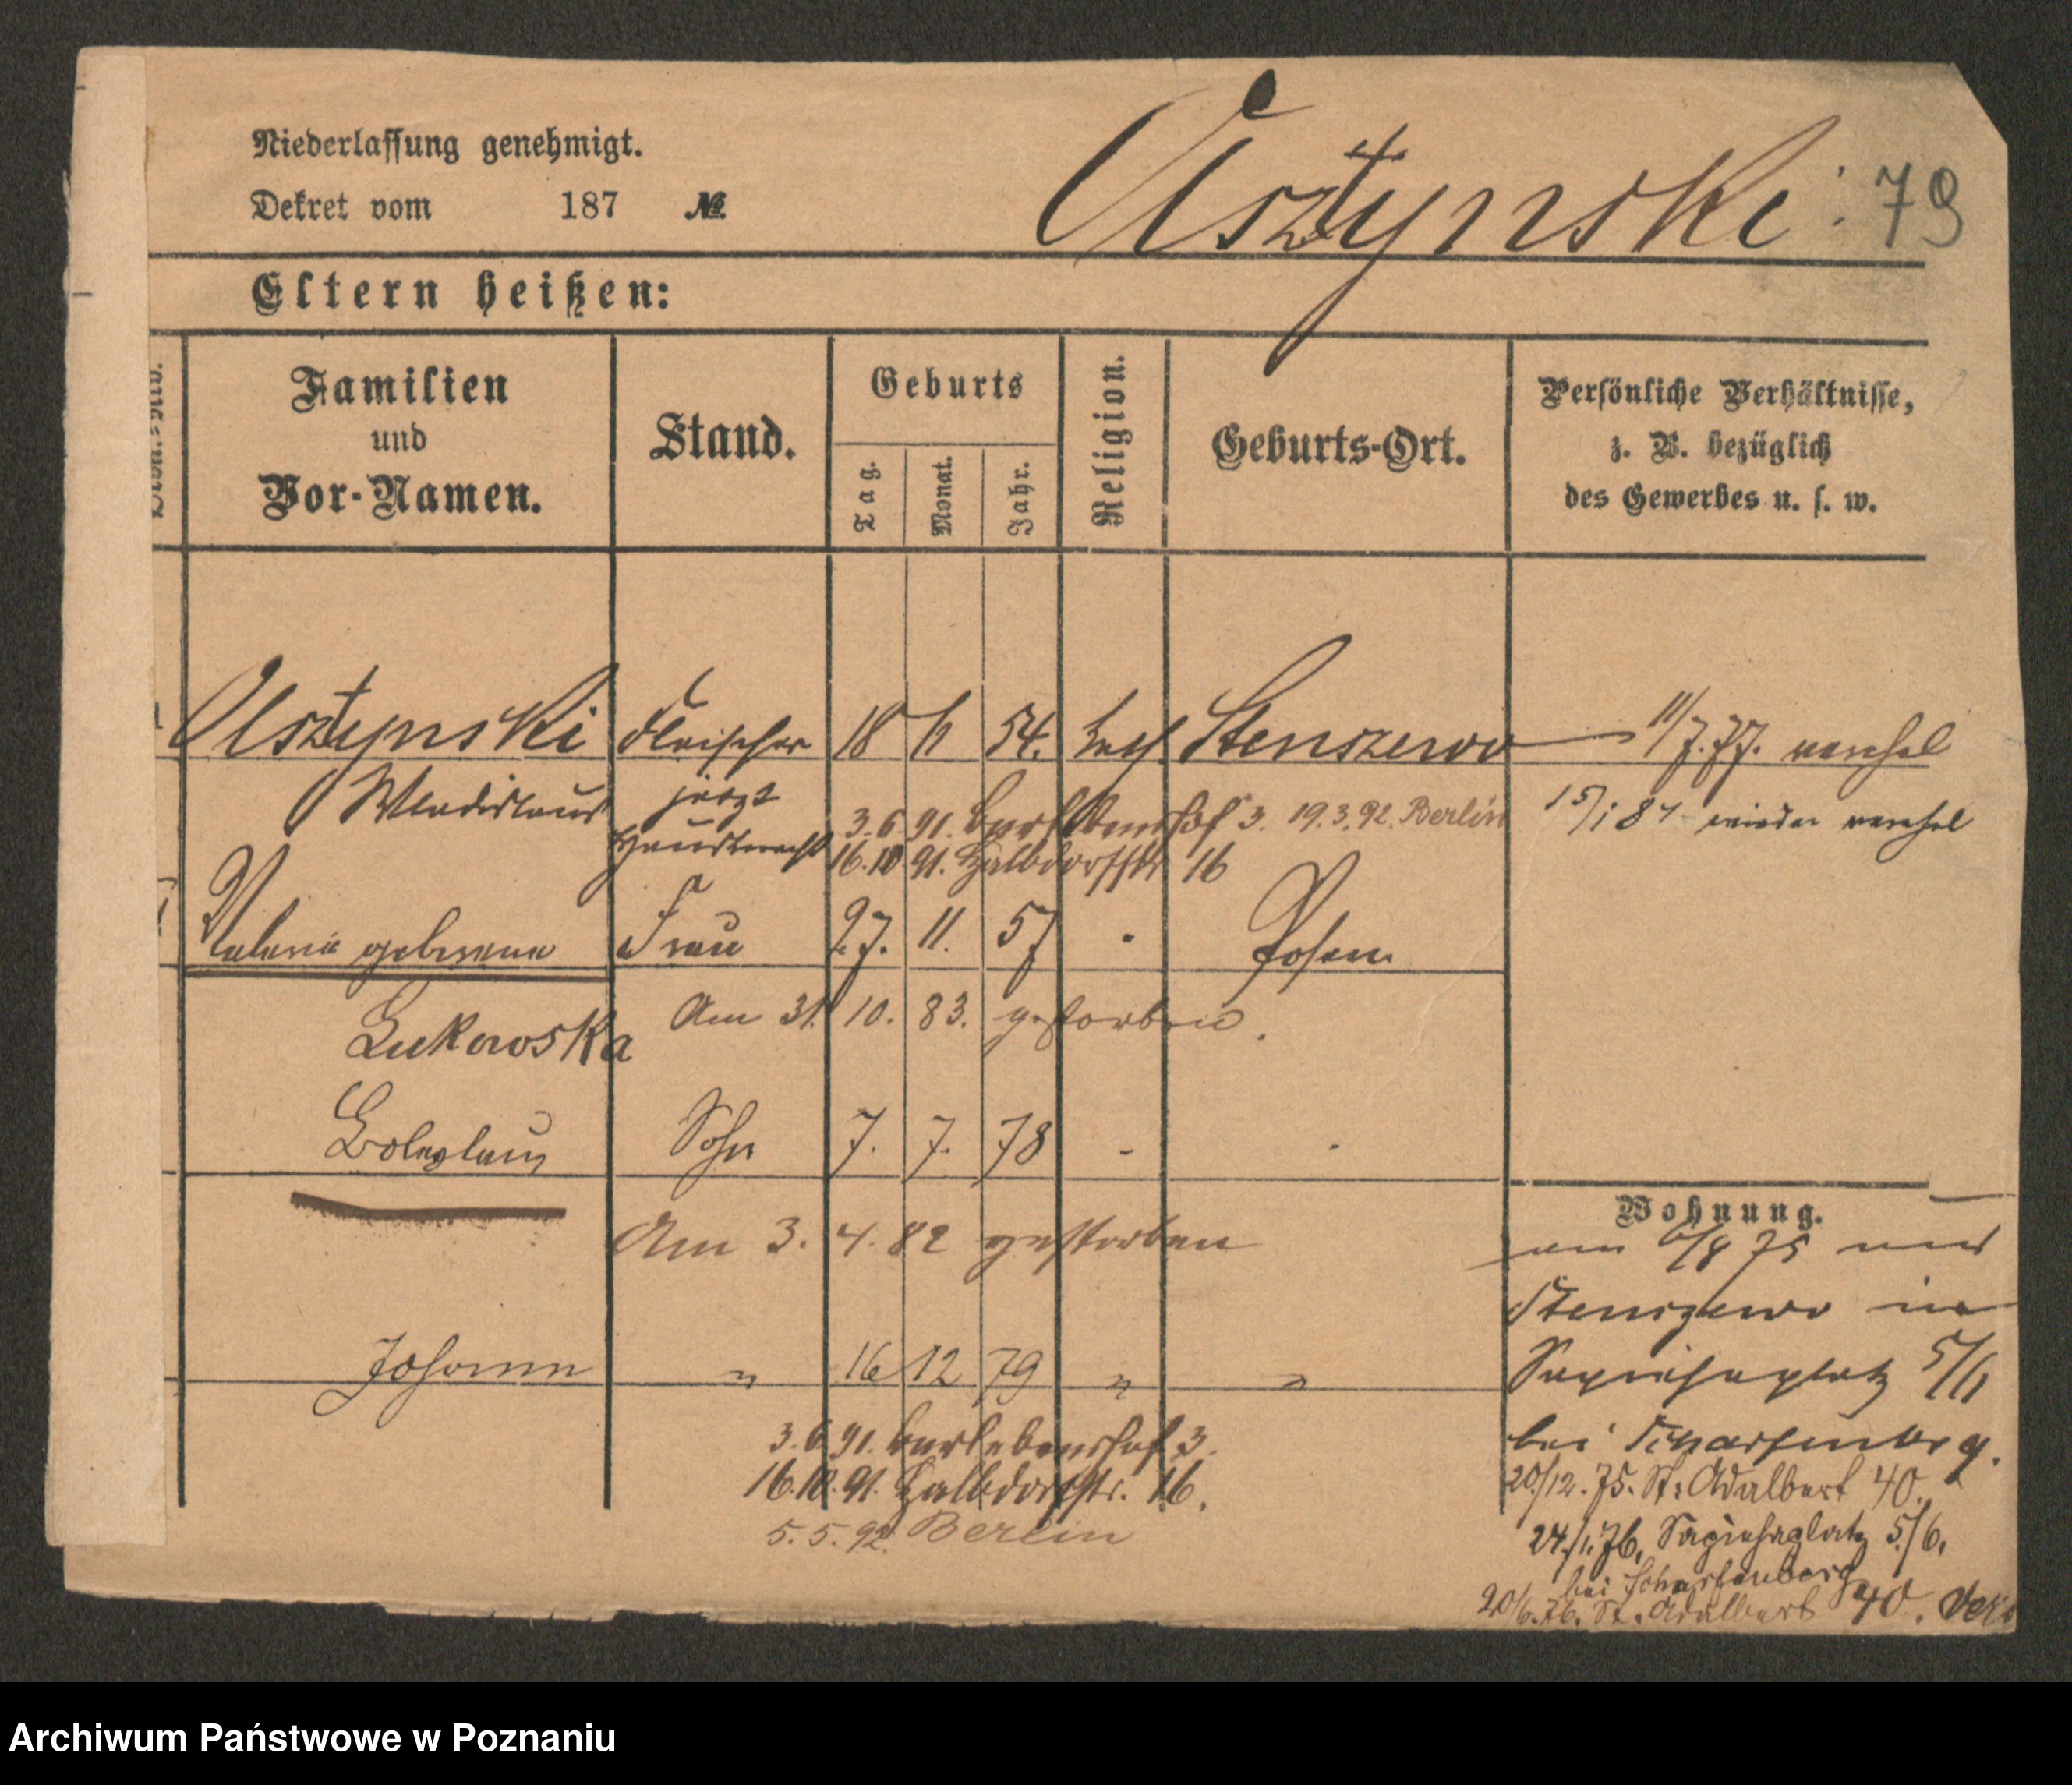 Niederlassung genehmigt.
Dekret vom 187 №
Olsztynski 79
Eltern heißen:
Familien und Vor-Namen.
Stand.
Geburts
Tag.
Monat.
Jahr.
Religion.
Geburts-Ort.
Persönliche Verhältnisse, z. B. bezüglich des Gewerbes u. s. w.
Olsztynski Fleischer 18 6 54. kath Stenszewo 11/7.77. verehel
Wladislaus jetzt 3.6.91. 3. 19.3.92. Berlin 15/1 84 wieder verehel
Hausknecht 16.10.91. Halbdorfstr 16
Valeria geborene Frau 27. 11. 57 " Posen
Lukowska Am 31. 10. 83. gestorben.
Boleslaus Sohn 7. 7. 78 " "
Am 3. 4. 82 gestorben
Johann " 16 12 79 " "
3.6.91. 3.
16.10.91. Halbdorfstr. 16.
5.5.92. Berlin
Wohnung.
am 6/8 75 aus
Stenszewo in
Sapiehaplatz 5/6
bei Scharfenberg.
20/12.75. St. Adalbert 40.
24/1.76. Sapiehaplatz 5/6.
bei Scharfenberg
20/6.76. St. Adalbert 40.
Archiwum Państwowe w Poznaniu